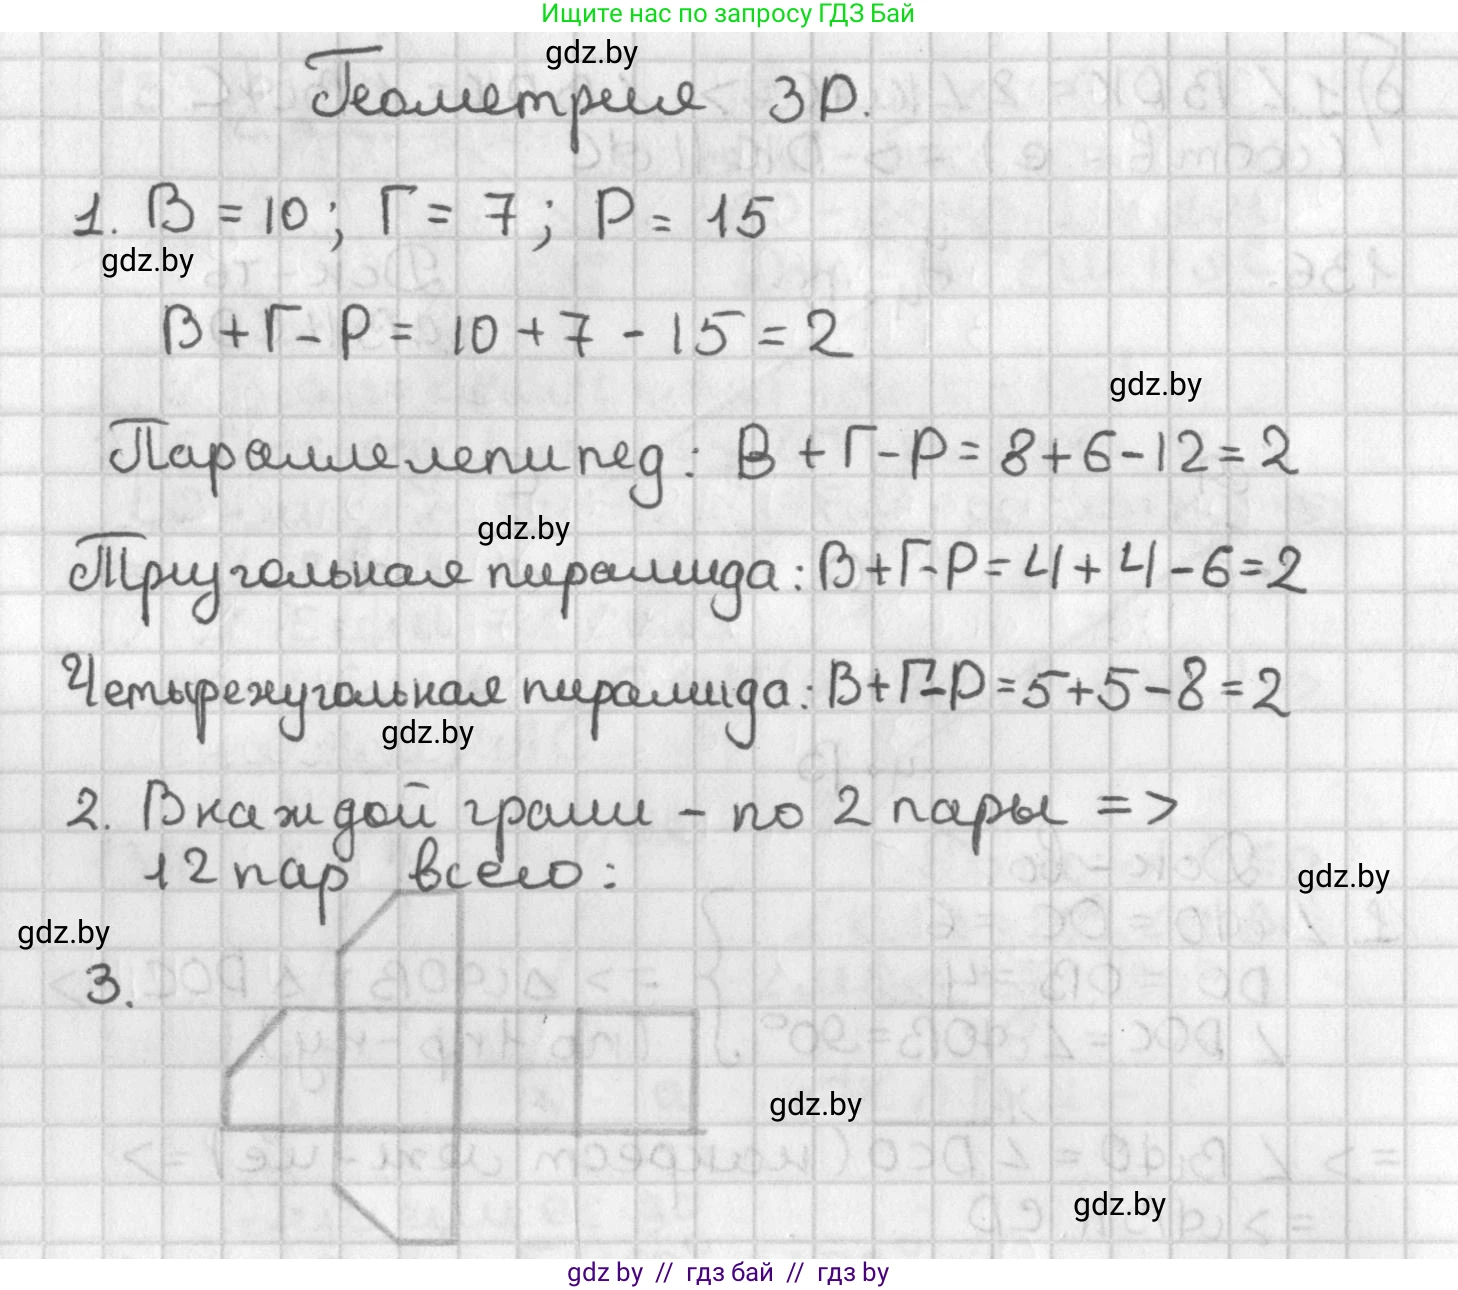 Ищите нас по запросу ГДЗ Бай
gdz.by
Геометрия 3D.
1. В = 10; Г = 7; Р = 15
gdz.by
В + Г - Р = 10 + 7 - 15 = 2
gdz.by
Параллелепипед: В + Г - Р = 8 + 6 - 12 = 2
gdz.by
Треугольная пирамида: В + Г - Р = 4 + 4 - 6 = 2
Четырехугольная пирамида: В + Г - Р = 5 + 5 - 8 = 2
gdz.by
2. В каждой грани - по 2 пары =>
12 пар всего:
gdz.by
gdz.by
3.
gdz.by
gdz.by
gdz by // гдз бай // гдз by